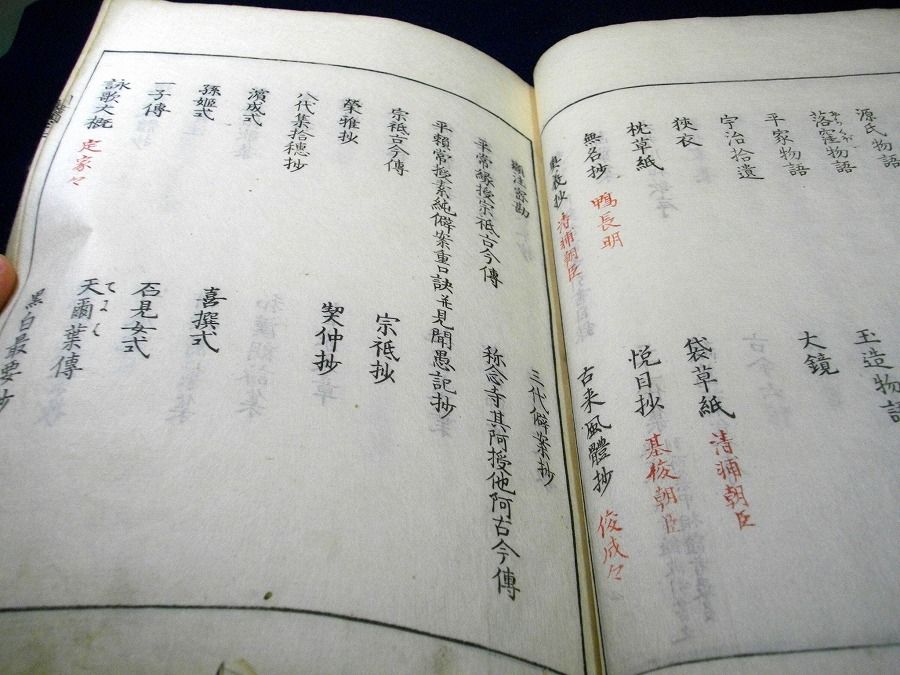 源氏物語
玉造物語
落窪物語
大鏡
平家物語
宇治拾遺
狭衣
袋草紙 清輔朝臣
枕草紙
悦目抄 基俊朝臣
無名抄 鴨長明
古来風體抄 俊成々
奥義抄 清輔朝臣
顕注密勘
三代僻案抄
平常縁授宗祇古今傳
称念寺其阿授他阿古今傳
平頼常授素純僻案重口訣并見聞愚記抄
宗祇古今傳
宗祇抄
榮雅抄
契仲抄
八代集拾穂抄
濱成式
喜撰式
孫姫式
石見女式
一子傳
天爾葉傳
詠歌大概 定家々
黒白最要抄